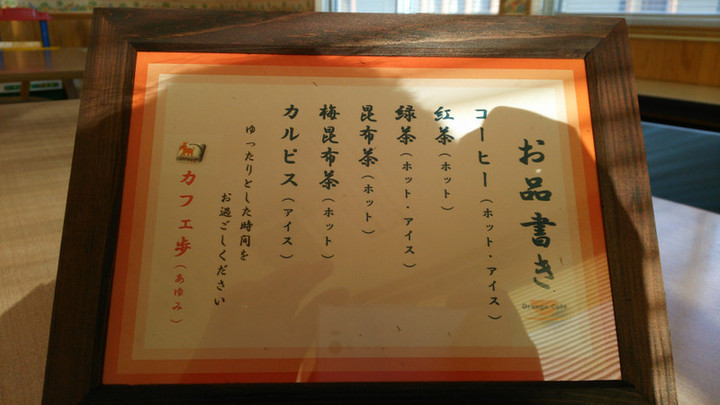 お品書き
Orange Cafe
コーヒー（ホット・アイス）
紅茶（ホット）
緑茶（ホット・アイス）
昆布茶（ホット）
梅昆布茶（ホット）
カルピス（アイス）
ゆったりとした時間を
お過ごしください
カフェ歩（あゆみ）